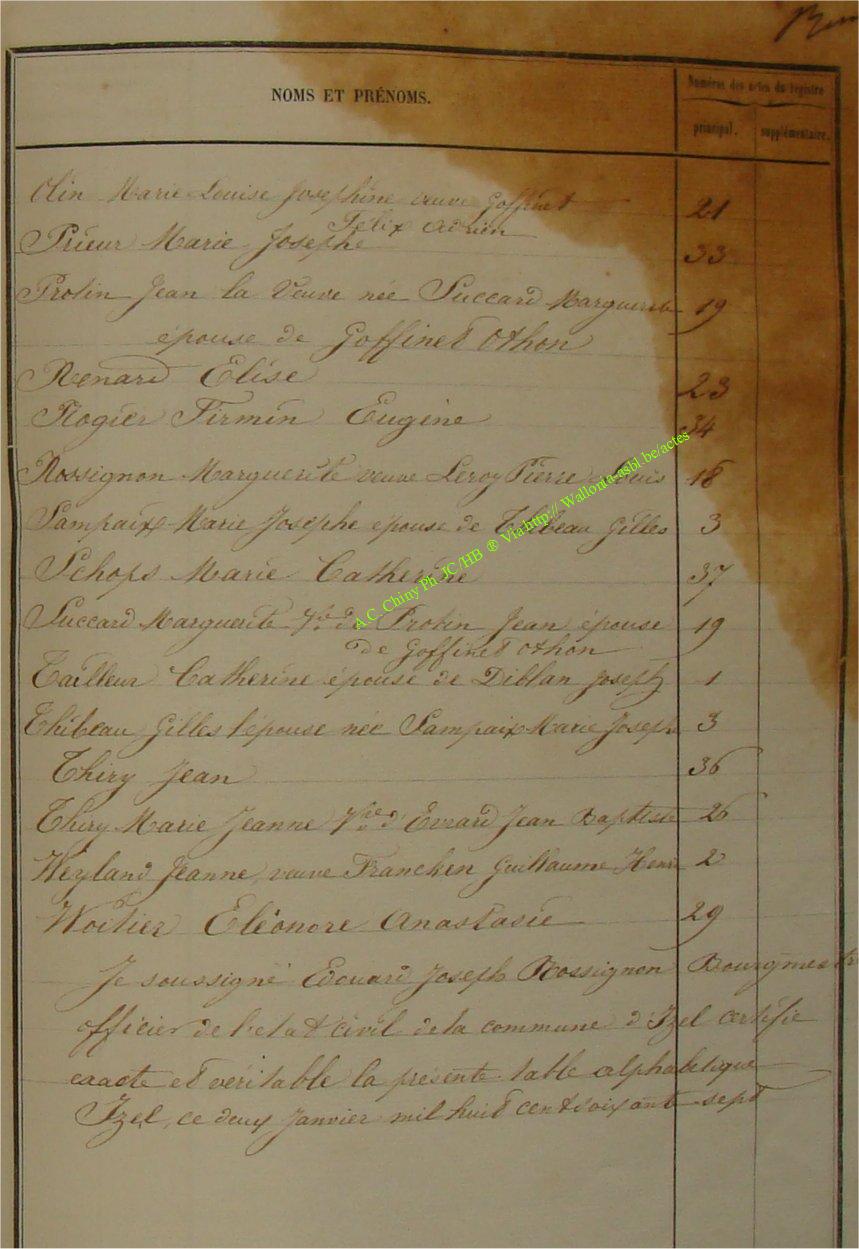 NOMS ET PRÉNOMS.
Numéros des actes du registre
principal. supplémentaire.
Olin Marie Louise Josephine veuve Goffinet 21
Félix Adrien
Prieur Marie Josephe 33
Protin Jean la Veuve née Succard Marguerite 19
épouse de Goffinet Othon
Renard Elise 23
Rogier Firmin Eugène 34
Rossignon Marguerite veuve Leroy Pierre Louis 18
Sampaix Marie Josephe épouse de Thibeau Gilles 3
Schops Marie Catherine 37
Succard Marguerite Vve de Protin Jean épouse 19
de Goffinet Othon
Tailleur Catherine épouse de Diblan Joseph 1
Thibeau Gilles l'épouse née Sampaix Marie Joseph 3
Thiry Jean 36
Thiry Marie Jeanne Vve d'Evrard Jean Baptiste 26
Weyland Jeanne, veuve Francken Guillaume Henri 2
Woitier Eléonore Anastasie 29
Je soussigné Edouard Joseph Rossignon Bourgmestre
officier de l'état civil de la commune d'Izel certifie
exacte et véritable la présente table alphabetique
Izel, ce deux Janvier mil huit cent soixante sept
A.C. Chiny Ph JC/HB ® Via http:// Wallonia-asbl.be/actes